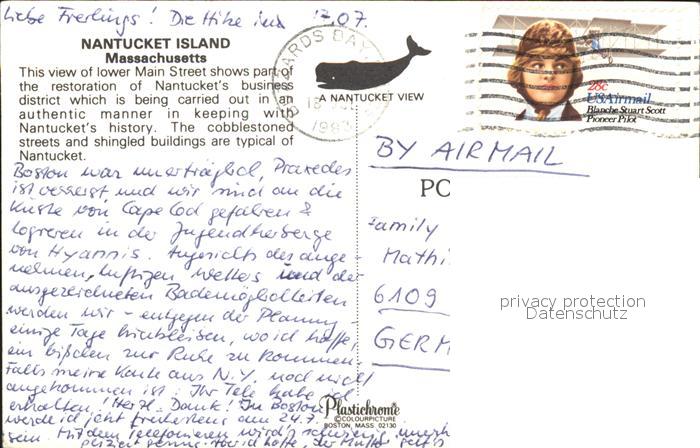 Liebe Frerlings! Die Hitze in 17.07.
NANTUCKET ISLAND
Massachusetts
This view of lower Main Street shows part of
the restoration of Nantucket's business
district which is being carried out in an
authentic manner in keeping with
Nantucket's history. The cobblestoned
streets and shingled buildings are typical of
Nantucket.
Boston war unerträglich, Praxedes
ist verreist, und wir sind an die
Küste von Cape Cod gefahren &
logieren in der Jugendherberge
von Hyannis. Angesichts des ange-
nehmen, luftigen Wetters und der
ausgezeichneten Bademöglichkeiten
werden wir - entgegen der Planung -
einige Tage hierbleiben, wo ich hoffe,
ein bißchen zur Ruhe zu kommen.
Falls meine Karte aus N.Y. noch nicht
angekommen ist: Ihr Tele habe ich
erhalten! Herzl. Dank! In Boston
werde ich jetzt frühestens am 24.7.
sein. Mit dem Telefonieren wird's
A NANTUCKET VIEW
28c
USAirmail
Blanche Stuart Scott
Pioneer Pilot
BY AIRMAIL
PO
Family
Mathi
6109
GERM
Plastichrome
COLOURPICTURE
BOSTON, MASS. 02130
privacy protection
Datenschutz